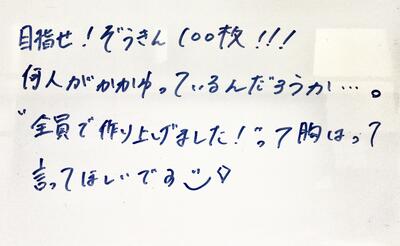 目指せ！ぞうきん100枚！！！
何人がかかわっているんだろうか…。
"全員で作り上げました！"って胸はって
言ってほしいです